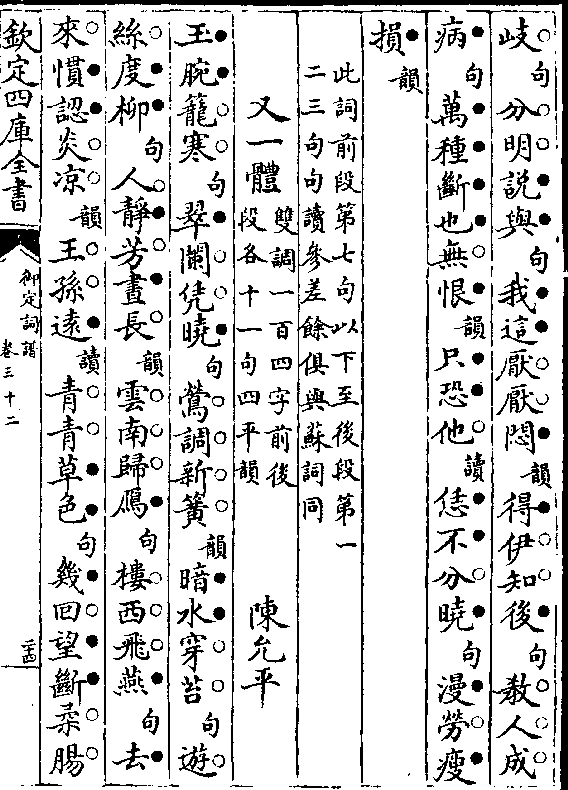 歧句分明說與句我這厭厭悶韻得伊知後句教人成
病句萬種斷也無恨韻只恐他讀恁不分曉句漫勞瘦
損韻
此詞前段第七句以下至後段第一
二三句句讀參差餘俱與蘇詞同
又一體雙調一百四字前後
段各十一句四平韻
陳允平
玉腕籠寒句翠闌凭曉句鶯調新簧韻暗水穿苔句遊
絲度柳句人靜芳晝長韻雲南歸鴈句樓西飛燕句去
來慣認炎凉韻王孫遠讀青青草色句幾回望斷柔腸
欽定四庫全書
御定詞譜
卷三十二
二十四